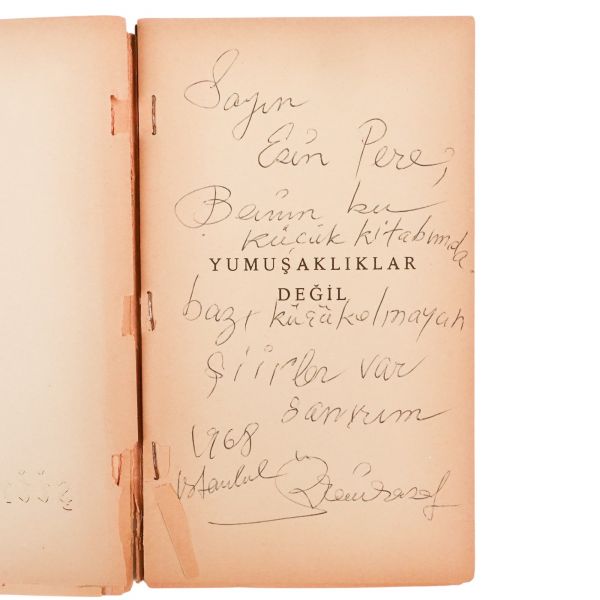 Sayın
Esin Pere,
Benim bu
küçük kitabımda
YUMUŞAKLIKLAR
DEĞİL
bazı küçük olmayan
şiirler var
sanırım
1968
İstanbul